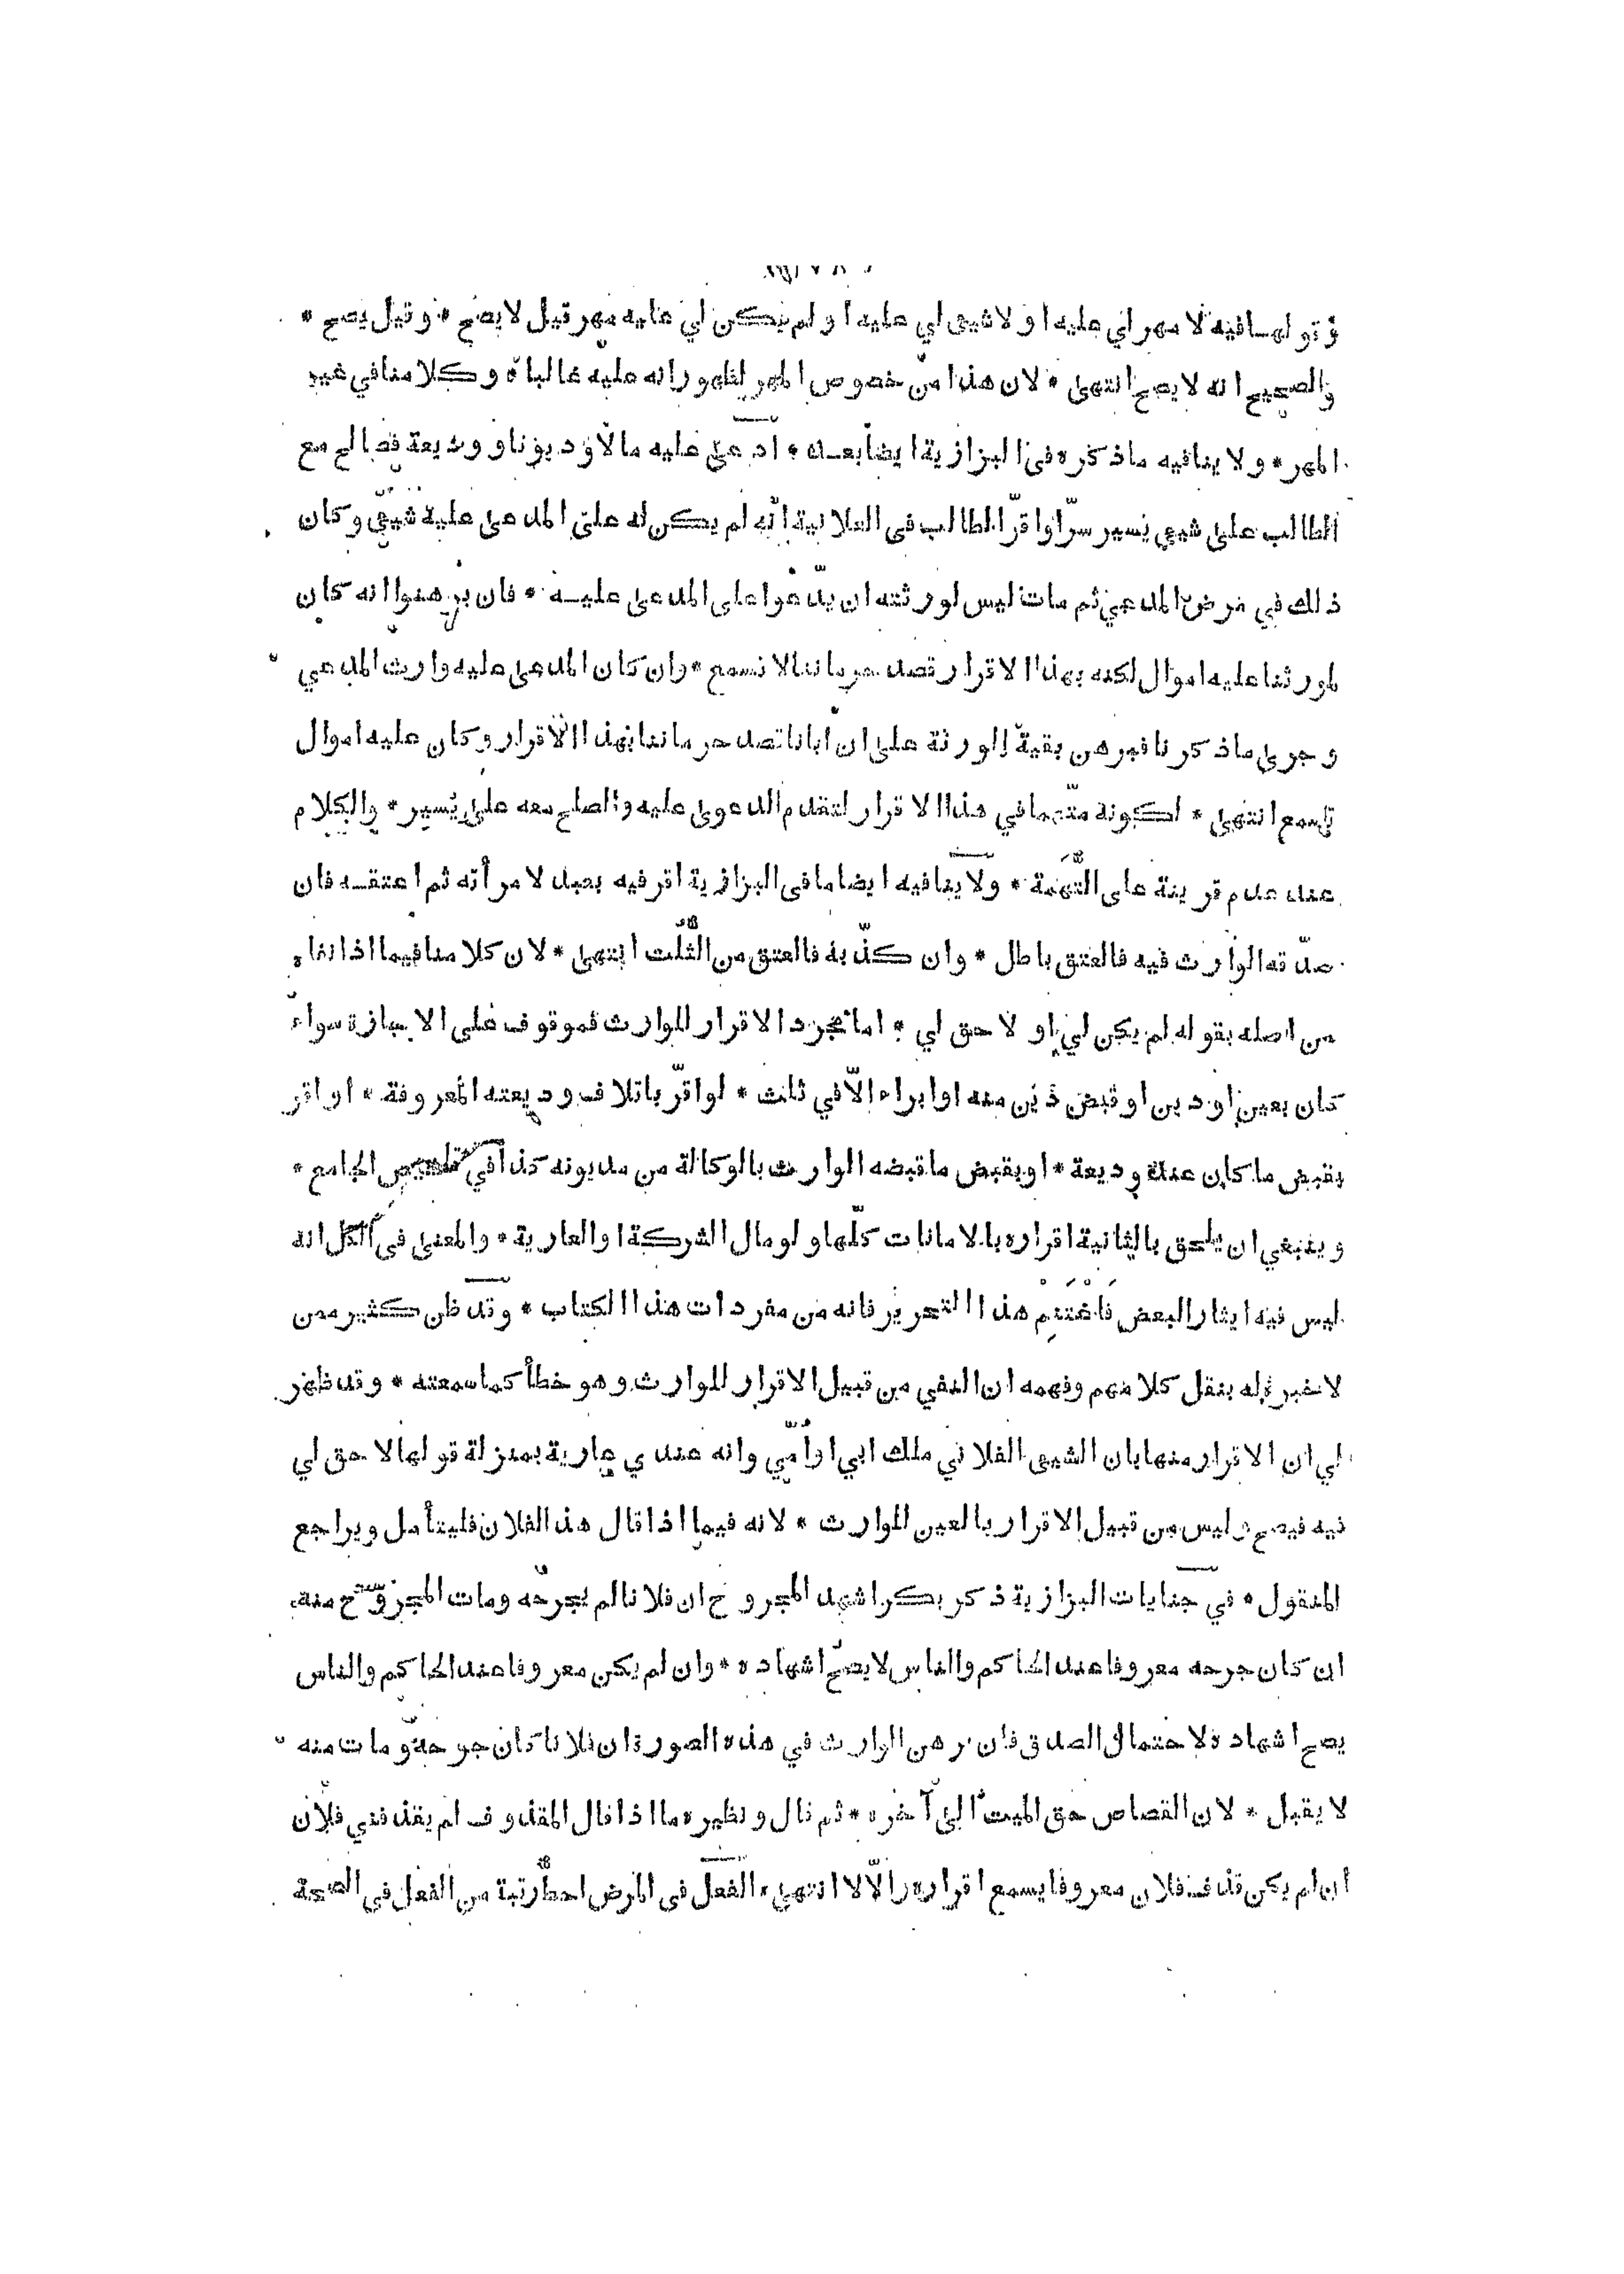 وقولها فيه لا مهر لي عليه او لا شيئ لي عليه او لم يكن لي عليه مهر قيل لا يصح * وقيل يصح *
والصحيح انه لا يصح انتهى * لان هذا من خصوص المهر لظهور انه عليه غالبا * وكلامنا في غير
المهر * ولا ينافيه ما ذكره فى البزازية ايضا بعده * ادعى عليه مالا وديونا ووديعة فصالح مع
الطالب على شيئ يسير سرّا واقرّ الطالب فى العلانية انّه لم يكن له على المدعى عليه شيئ وكان
ذلك في مرض المدعي ثم مات ليس لورثته ان يدّعوا على المدعى عليه * فان برهنوا انه كان
لمورثنا عليه اموال لكنه بهذا الاقرار قصد حرماننا لا تسمع * وان كان المدعى عليه وارث المدعي
وجرى ما ذكرنا فبرهن بقية الورثة على ان ابانا قصد حرماننا بهذا الاقرار وكان عليه اموال
تسمع انتهى * لكونه متّهما في هذا الاقرار لتقدم الدعوى عليه والصلح معه على يسير * والكلام
عند عدم قرينة على التُّهَمة * ولا ينافيه ايضا ما فى البزازية اقر فيه بعبد لامرأته ثم اعتقه فان
صدّقه الوارث فيه فالعتق باطل * وان كذّبه فالعتق من الثُّلُث انتهى * لان كلامنا فيما اذا نفاه
من اصله بقوله لم يكن لي او لا حق لي * اما مجرد الاقرار للوارث فموقوف على الاجازة سواء
كان بعين او دين او قبض دَين منه او ابراء الّا في ثلث * لو اقرّ باتلاف وديعته المعروفة * او اقر
بقبض ما كان عنده وديعة * او بقبض ما قبضه الوارث بالوكالة من مديونه كذا في تلخيص الجامع *
وينبغي ان يلحق بالثانية اقراره بالامانات كلّها ولو مال الشركة او العارية * والمعنى فى الكل انه
ليس فيه ايثار البعض فَاغْتَنِمْ هذا التحرير فانه من مفردات هذا الكتاب * وقد ظن كثير ممن
لا خبرة له بنقل كلامهم وفهمه ان النفي من قبيل الاقرار للوارث وهو خطأ كما سمعته * وقد ظهر
لي ان الاقرار منها بان الشيئ الفلاني ملك ابي او اُمّي وانه عندي عارية بمنزلة قولها لا حق لي
فيه فيصح وليس من قبيل الاقرار بالعين للوارث * لانه فيما اذا قال هذا لفلان فليتأمل ويراجع
المنقول * في جنايات البزازية ذكر بكر اشهد المجروح ان فلانا لم يجرحه ومات المجروح منه
ان كان جرحه معروفا عند الحاكم والناس لا يصحّ اشهاده * وان لم يكن معروفا عند الحاكم والناس
يصح اشهاده لاحتمال الصدق فان برهن الوارث في هذه الصورة ان فلانا كان جرحه ومات منه
لا يقبل * لان القصاص حق الميت الى آخره * ثم قال ونظيره ما اذا قال المقذوف لم يقذفني فلان
ان لم يكن قذف فلان معروفا يسمع اقراره والّا لا انتهى * الفعل فى المرض احطّ رتبة من الفعل فى الصحة